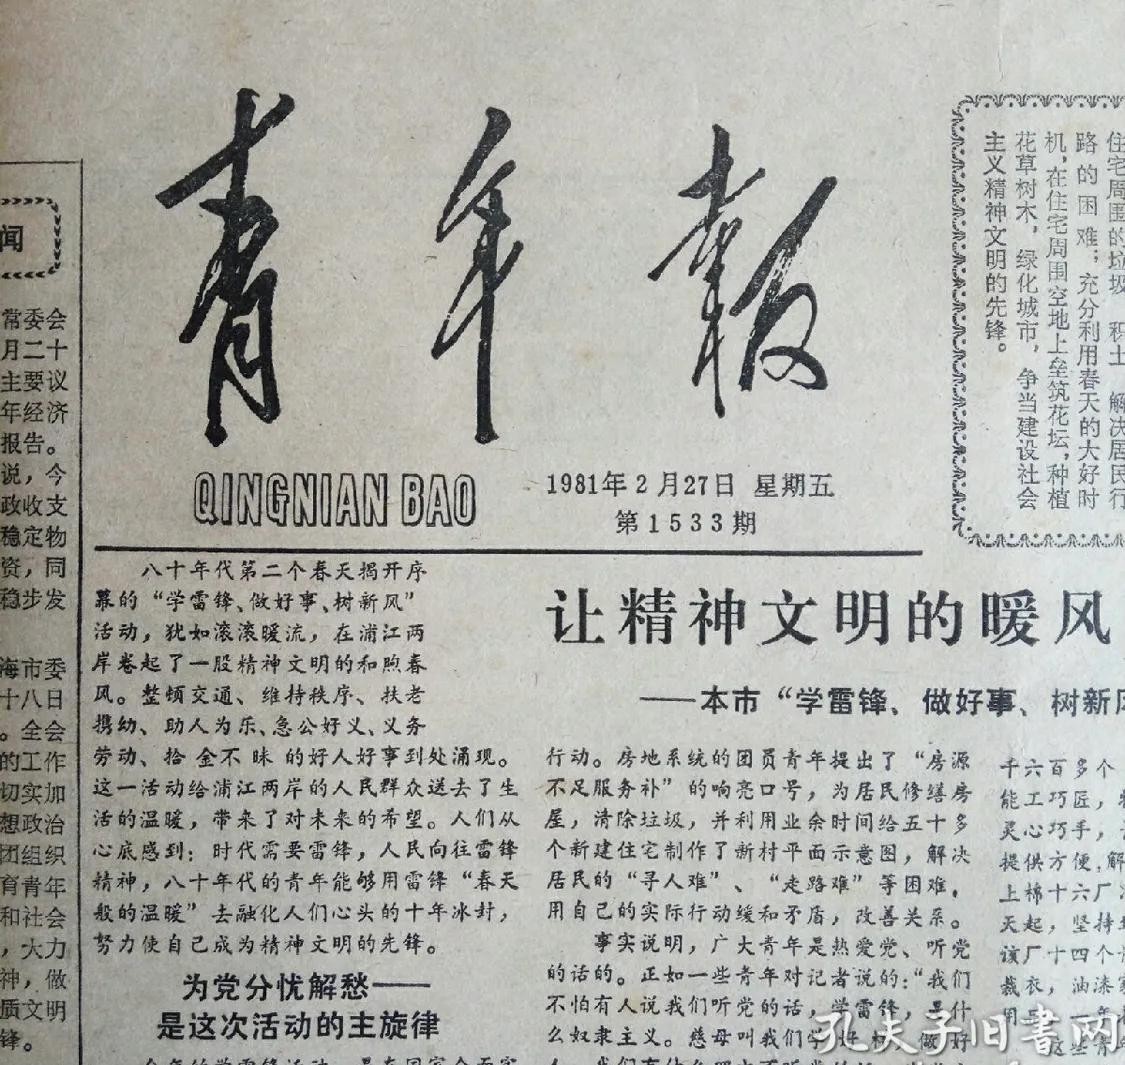 青年报
QINGNIAN BAO
1981年2月27日 星期五
第1533期
住宅周围的垃圾 积土 解决居民行
路的困难；充分利用春天的大好时
机，在住宅周围空地上垒筑花坛，种植
花草树木，绿化城市，争当建设社会
主义精神文明的先锋。
闻
常委会
月二十
主要议
年经济
报告。
说，今
政收支
稳定物
资，同
稳步发
海市委
十八日
。全会
的工作
切实加
想政治
团组织
育青年
和社会
，大力
神，做
质文明
锋。
八十年代第二个春天揭开序
幕的“学雷锋、做好事、树新风”
活动，犹如滚滚暖流，在浦江两
岸卷起了一股精神文明的和煦春
风。整顿交通、维持秩序、扶老
携幼、助人为乐、急公好义、义务
劳动、拾金不昧的好人好事到处涌现。
这一活动给浦江两岸的人民群众送去了生
活的温暖，带来了对未来的希望。人们从
心底感到：时代需要雷锋，人民向往雷锋
精神，八十年代的青年能够用雷锋“春天
般的温暖”去融化人们心头的十年冰封，
努力使自己成为精神文明的先锋。
为党分忧解愁——
是这次活动的主旋律
让精神文明的暖风
——本市“学雷锋、做好事、树新风
行动。房地系统的团员青年提出了“房源
不足服务补”的响亮口号，为居民修缮房
屋，清除垃圾，并利用业余时间给五十多
个新建住宅制作了新村平面示意图，解决
居民的“寻人难”、“走路难”等困难，
用自己的实际行动缓和矛盾，改善关系。
事实说明，广大青年是热爱党、听党
的话的。正如一些青年对记者说的：“我们
不怕有人说我们听党的话，学雷锋，是什
么奴隶主义。慈母叫我们学好样，做好
千六百多个
能工巧匠，
灵心巧手，
提供方便，解
上棉十六厂
天起，坚持
该厂十四个
裁衣，油漆
用品。一年
这些青
孔夫子旧书网